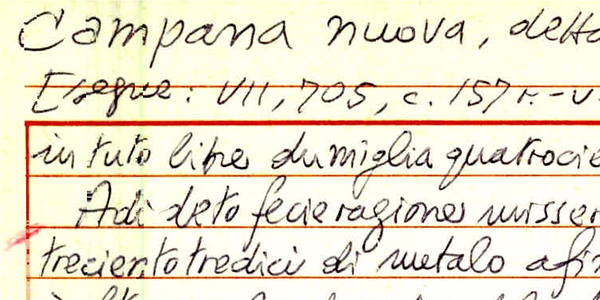 Campana nuova, detta
[segue: VII, 705, c. 157 r.-v.
in tuto libre dumiglia quatrocie
Adi deto fecie ragione misser
trecientotredici di metalo afi